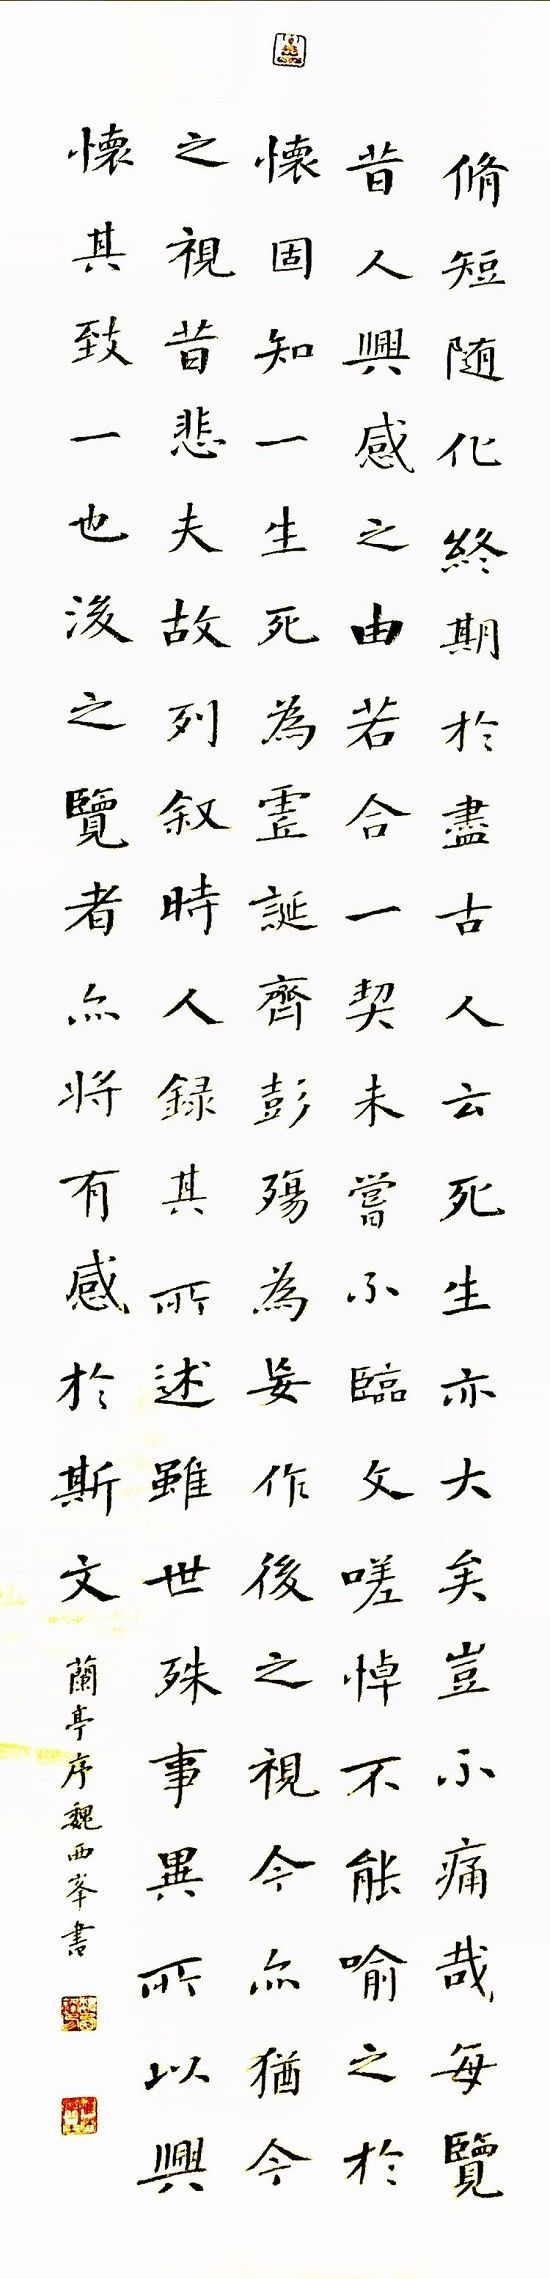 脩短隨化終期於盡古人云死生亦大矣豈不痛哉每覽
昔人興感之由若合一契未嘗不臨文嗟悼不能喻之於
懷固知一生死為虛誕齊彭殤為妄作後之視今亦猶今
之視昔悲夫故列叙時人録其所述雖世殊事異所以興
懷其致一也後之覽者亦将有感於斯文
蘭亭序魏西峯書